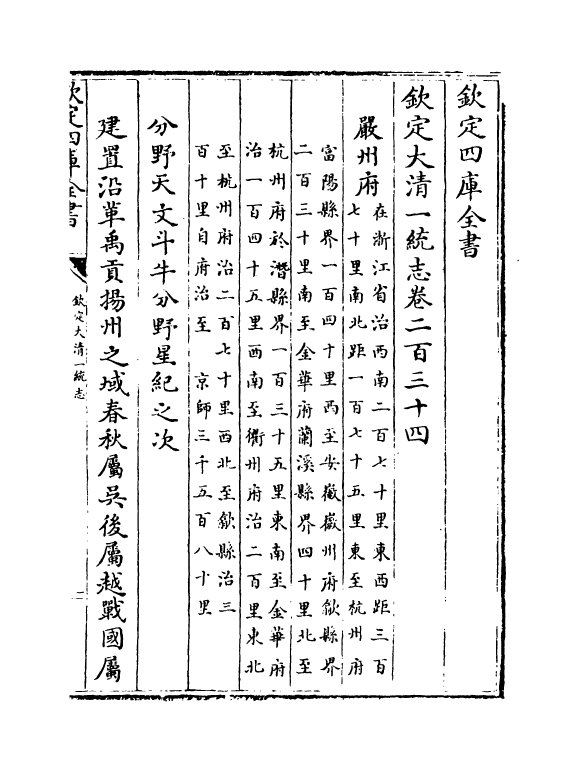 欽定四庫全書
欽定大清一統志卷二百三十四
嚴州府
在浙江省治西南二百七十里東西距三百
七十里南北距一百七十五里東至杭州府
富陽縣界一百四十里西至安徽徽州府歙縣界
二百三十里南至金華府蘭溪縣界四十里北至
杭州府於潛縣界一百三十五里東南至金華府
治一百四十五里西南至衢州府治二百里東北
至杭州府治二百七十里西北至歙縣治三
百十里自府治至 京師三千五百八十里
分野天文斗牛分野星紀之次
建置沿革禹貢揚州之域春秋屬吳後屬越戰國屬
欽定四庫全書
欽定大清一統志